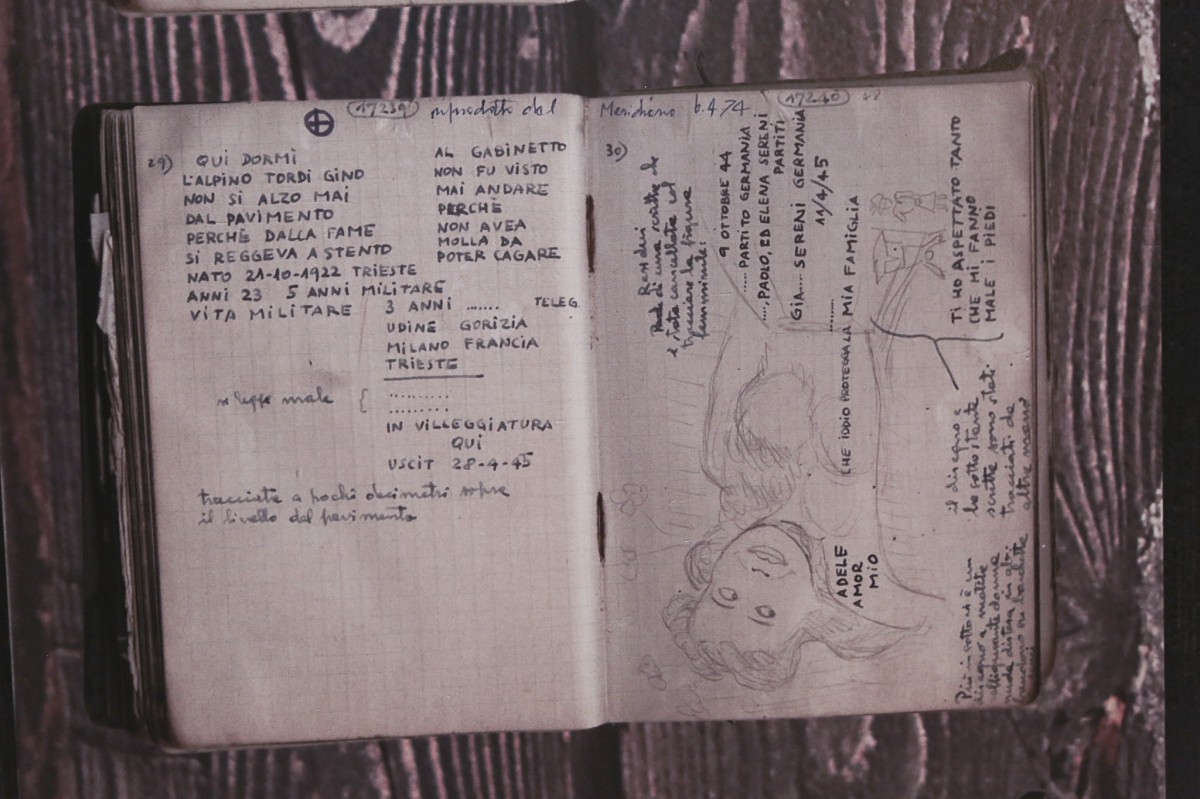 17239 riprodotto dal
29)
QUI DORMÌ
L'ALPINO TORDI GINO
NON SI ALZO MAI
DAL PAVIMENTO
PERCHÈ DALLA FAME
SI REGGEVA A STENTO
NATO 21-10-1922 TRIESTE
ANNI 23 5 ANNI MILITARE
VITA MILITARE 3 ANNI ....... TELEG.
UDINE GORIZIA
MILANO FRANCIA
TRIESTE
AL GABINETTO
NON FU VISTO
MAI ANDARE
PERCHÈ
NON AVEA
MOLLA DA
POTER CAGARE
si legge male {
..........
.........
IN VILLEGGIATURA
QUI
USCIT 28-4-45
tracciate a pochi decimetri sopra
il livello del pavimento
17240 48
Meridiano 6.4.74
30)
Residui
di una scritta che
è stata cancellata col
tracciare la figura
femminile:
9 OTTOBRE 44
..... PARTITO GERMANIA
...., PAOLO, ED ELENA SERENI
PARTITI
GIA.... SERENI GERMANIA
11/4/45
........
CHE IDDIO PROTEGGA LA MIA FAMIGLIA
TI HO ASPETTATO TANTO
CHE MI FANNO
MALE I PIEDI
ADELE
AMOR
MIO
il disegno e
la sottostante
scritta sono stati
tracciati da
altra mano
Più in sotto vi è un
disegno a matita
nuda distesa in